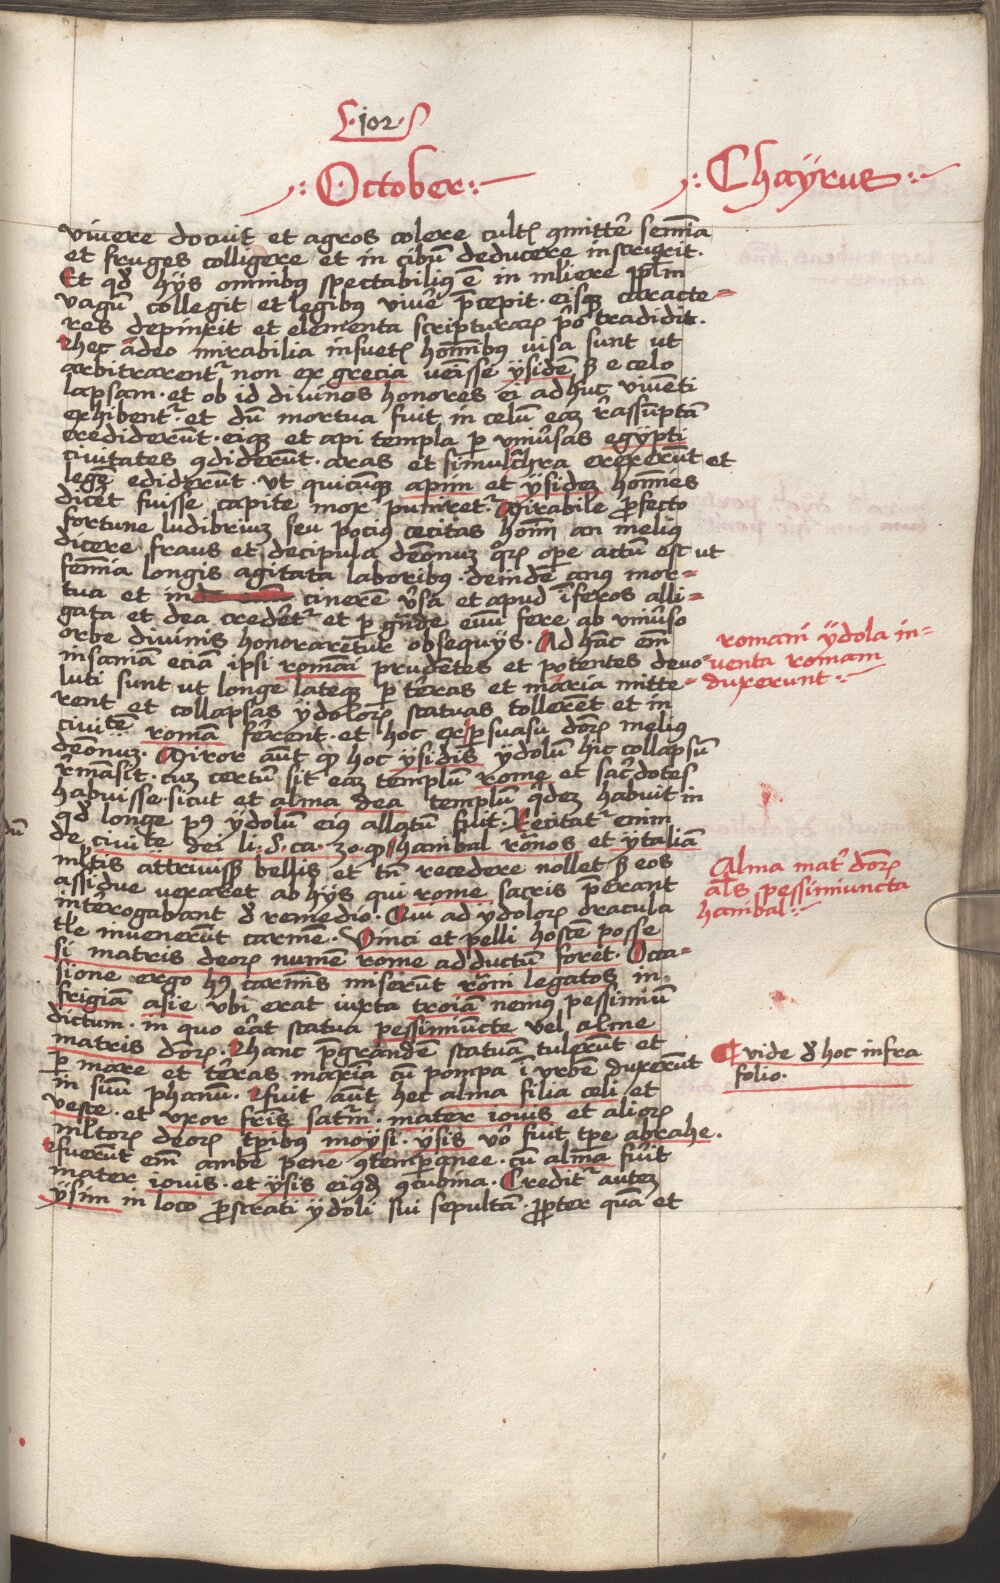 102
October
Chaÿrus
vivere docuit et agros colere cultꝫ ꝯmitter̄ semīa
et fruges colligere et in cibū deducere instruxit.
Et qđ hÿs omnibꝰ spectabiliꝰ ē in mliere pplm
vagū collegit et legibꝰ viuē p̄cepit. eisqꝫ caracte-
res depinxit et elementa scripturaꝝ p̄o tradidit.
hec adeo mirabilia insuetꝭ hoīnibꝰ visa sunt ut
arbitrarent᷑ non ex grecia venisse ÿsidē sꝫ e celo
lapsam. et ob id divinos honores ei adhuc viventi
exhibent᷑. et dū mortua fuit in celū eaꝫ r̄assūptā
crediderūt. eiqꝫ et api templa ꝑ vniūsas egÿpti
civitates ꝯdiderūt. aras et simulac̄hra erexerūt et
legē ediderūt. ut quicūqꝫ apim et ÿsideꝫ hoīnes
dicēt fuisse capite mox puniret᷑. Mirabile ꝓfecto
fortune ludibriuꝫ seu pocius cecitas hoīm an melius
dicere fraus et decipula demonuꝫ qꝝ ope actū est ut
femīa longis agitata laboribꝰ. deinde anus mor-
tua et in cinerē ūsa et apud īferos alli-
gata et dea credēt᷑ et ꝑ gn̄de euū fere ab vniūso
orbe divinis honorarētur obsequÿs. Ad hāc em̄
insaniā eciā ipsi romai prudētes et potentes devo-
luti sunt ut longe lateqꝫ ꝑ t̄ras et maria mitte-
rent et collapsas ÿdoloꝝ statuas tollerēt et in
ciuitē romā fērent. et hoc ex psuasu dōꝝ meliꝰ
demonuꝫ. Miror aūt ꝙ hoc ÿsidis ÿdolū hic collapsū
r̄mansit. cuꝫ certū sit eaꝫ templū rome et sac̄dotes
habuisse. sicut et alma dea templū qdeꝫ habuit in
qđ longe pꝰ ÿdolū eiꝰ allatū fuit. Recitat᷑ enim
de ciuite dei li. 8. ca. 30. ꝙ hanibal rōnos et ÿtaliā
mltis attrivissꝫ bellis et tn̄ recedere nollet sꝫ eos
assidue vexaret ab hÿs qui rome sacris p̄erant
interogabant đ remedio. Qui ad ÿdoloꝝ oracula
tle invenerūt carmē. Vinci et pelli hoste posse
si matris deoꝝ numē rome adductū foret. Occa-
sione ergo hꝰ carmīs miserūt rōni legatos in
frigiā asie vbi erat iuxta troiā nemus pessimiū
dictum. in quo ēat statua pessimiūcte vel alme
matris dōꝝ. hanc p̄grandē statuā tulerūt et
ꝑ mare et t̄ras maxīa cū pompa ī vrbē duxerūt
in suū phanū. fuit aūt hec alma filia celi et
veste. et vxor fris satnī. mater iovis et alioꝝ
mltoꝝ deoꝝ tꝑibus moÿsi. ÿsis vō fuit tpe abrahe.
fuerūt em̄ ambe pene ꝯtemꝑanee. cū alma fūit
mater iovis. et ÿsis eiꝰđ ꝯcubina. Credit᷑ auteꝫ
ÿsim in loco ꝓstrati ÿdoli sui sepultā. ꝓpter quā et
romani ÿdola in-
venta romam
duxerunt.
Alma mat᷑ dōꝝ
als pessimiuncta
hanibal.
vide đ hoc infra
folio.